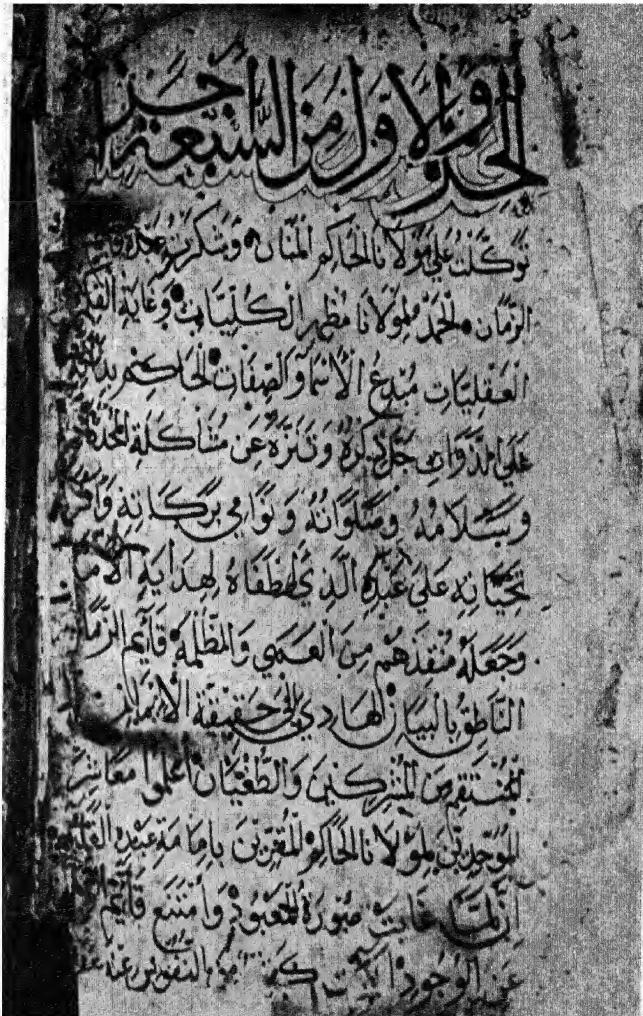 الجزو الاول من السبعة اجزا
توكلت علي مولانا الحاكم المنان وشكرت عبده قايم
الزمان الحمد لمولانا مظهر الكليات وغاية
العقليات مبدع الاسما والصفات الحاكم
علي الذوات جل ذكره وتنزه عن مشاكلة
وسلامه وصلوانه ونوامي بركاته
تحياته علي عبده الذي اصطفاه لهداية
وجعله منقذهم من العمي والظلمة قايم الزمان
الناطق بالبيان الهادي الي حقيقة الايمان
المنتقم من المشركين والطغيان اعلموا معاشر
الموحدين لمولانا الحاكم المقرين بامامة عبده
ان لما غابت صورة المعبود وامتنع قايم
عن الوجود